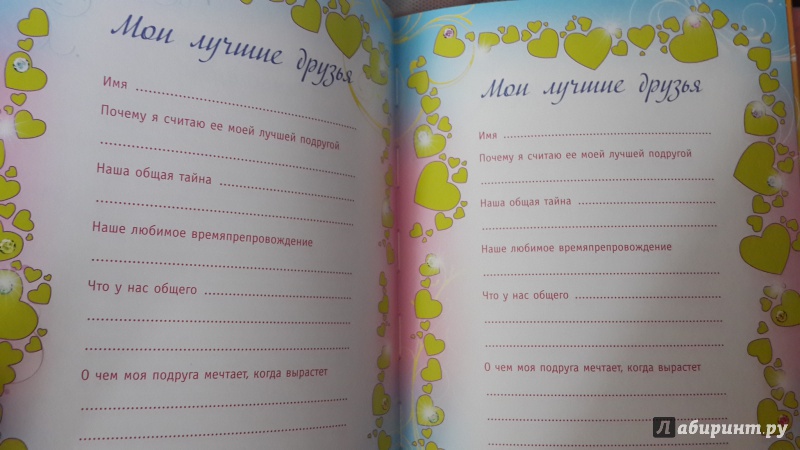 Мои лучшие друзья
Имя
Почему я считаю ее моей лучшей подругой
Наша общая тайна
Наше любимое времяпрепровождение
Что у нас общего
О чем моя подруга мечтает, когда вырастет
Мои лучшие друзья
Имя
Почему я считаю ее моей лучшей подругой
Наша общая тайна
Наше любимое времяпрепровождение
Что у нас общего
О чем моя подруга мечтает, когда вырастет
Лабиринт.ру